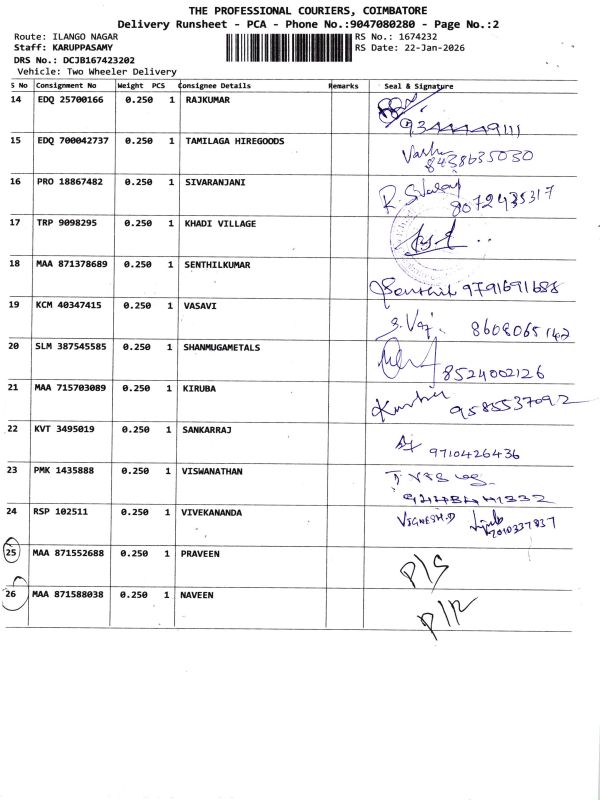 THE PROFESSIONAL COURIERS, COIMBATORE
Delivery Runsheet - PCA - Phone No.:9047080280 - Page No.:2
Route: ILANGO NAGAR RS No.: 1674232
Staff: KARUPPASAMY RS Date: 22-Jan-2026
DRS No.: DCJB167423202
Vehicle: Two Wheeler Delivery
S No Consignment No Weight PCS Consignee Details Remarks Seal & Signature
14 EDQ 25700166 0.250 1 RAJKUMAR
9344449111
15 EDQ 700042737 0.250 1 TAMILAGA HIREGOODS
8438635030
16 PRO 18867482 0.250 1 SIVARANJANI
8072435317
17 TRP 9098295 0.250 1 KHADI VILLAGE
18 MAA 871378689 0.250 1 SENTHILKUMAR
Senthil 9791691688
19 KCM 40347415 0.250 1 VASAVI
8608065142
20 SLM 387545585 0.250 1 SHANMUGAMETALS
8524002126
21 MAA 715703089 0.250 1 KIRUBA
9585537092
22 KVT 3495019 0.250 1 SANKARRAJ
9710426436
23 PMK 1435888 0.250 1 VISWANATHAN
24 RSP 102511 0.250 1 VIVEKANANDA
VIGNESH.D 7010337837
25 MAA 871552688 0.250 1 PRAVEEN
P/S
26 MAA 871588038 0.250 1 NAVEEN
P/R